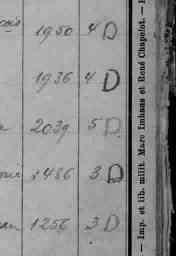 1950 4 D
1936 4 D
2039 5 D
1486 3 D
1256 3 D
— Imp. et lib. milit. Marc Imhaus et René Chapelot. —